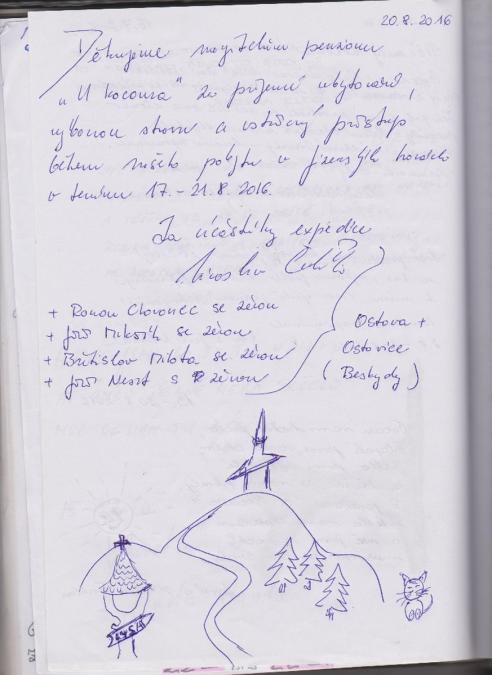 20.8.2016
Děkujeme majitelům penzionu
„U kocoura" za příjemné ubytování,
výbornou stravu a vstřícný přístup
během našeho pobytu v Jizerských horách
v termínu 17. – 21.8.2016.
Za účastníky expedice
Miroslav
+ Roman Chovanec se ženou
+ Jiří Mikeš se ženou
+ Břetislav Milota se ženou
+ Jiří s ženou
Ostrava +
Ostravice
(Beskydy)
LYSÁ